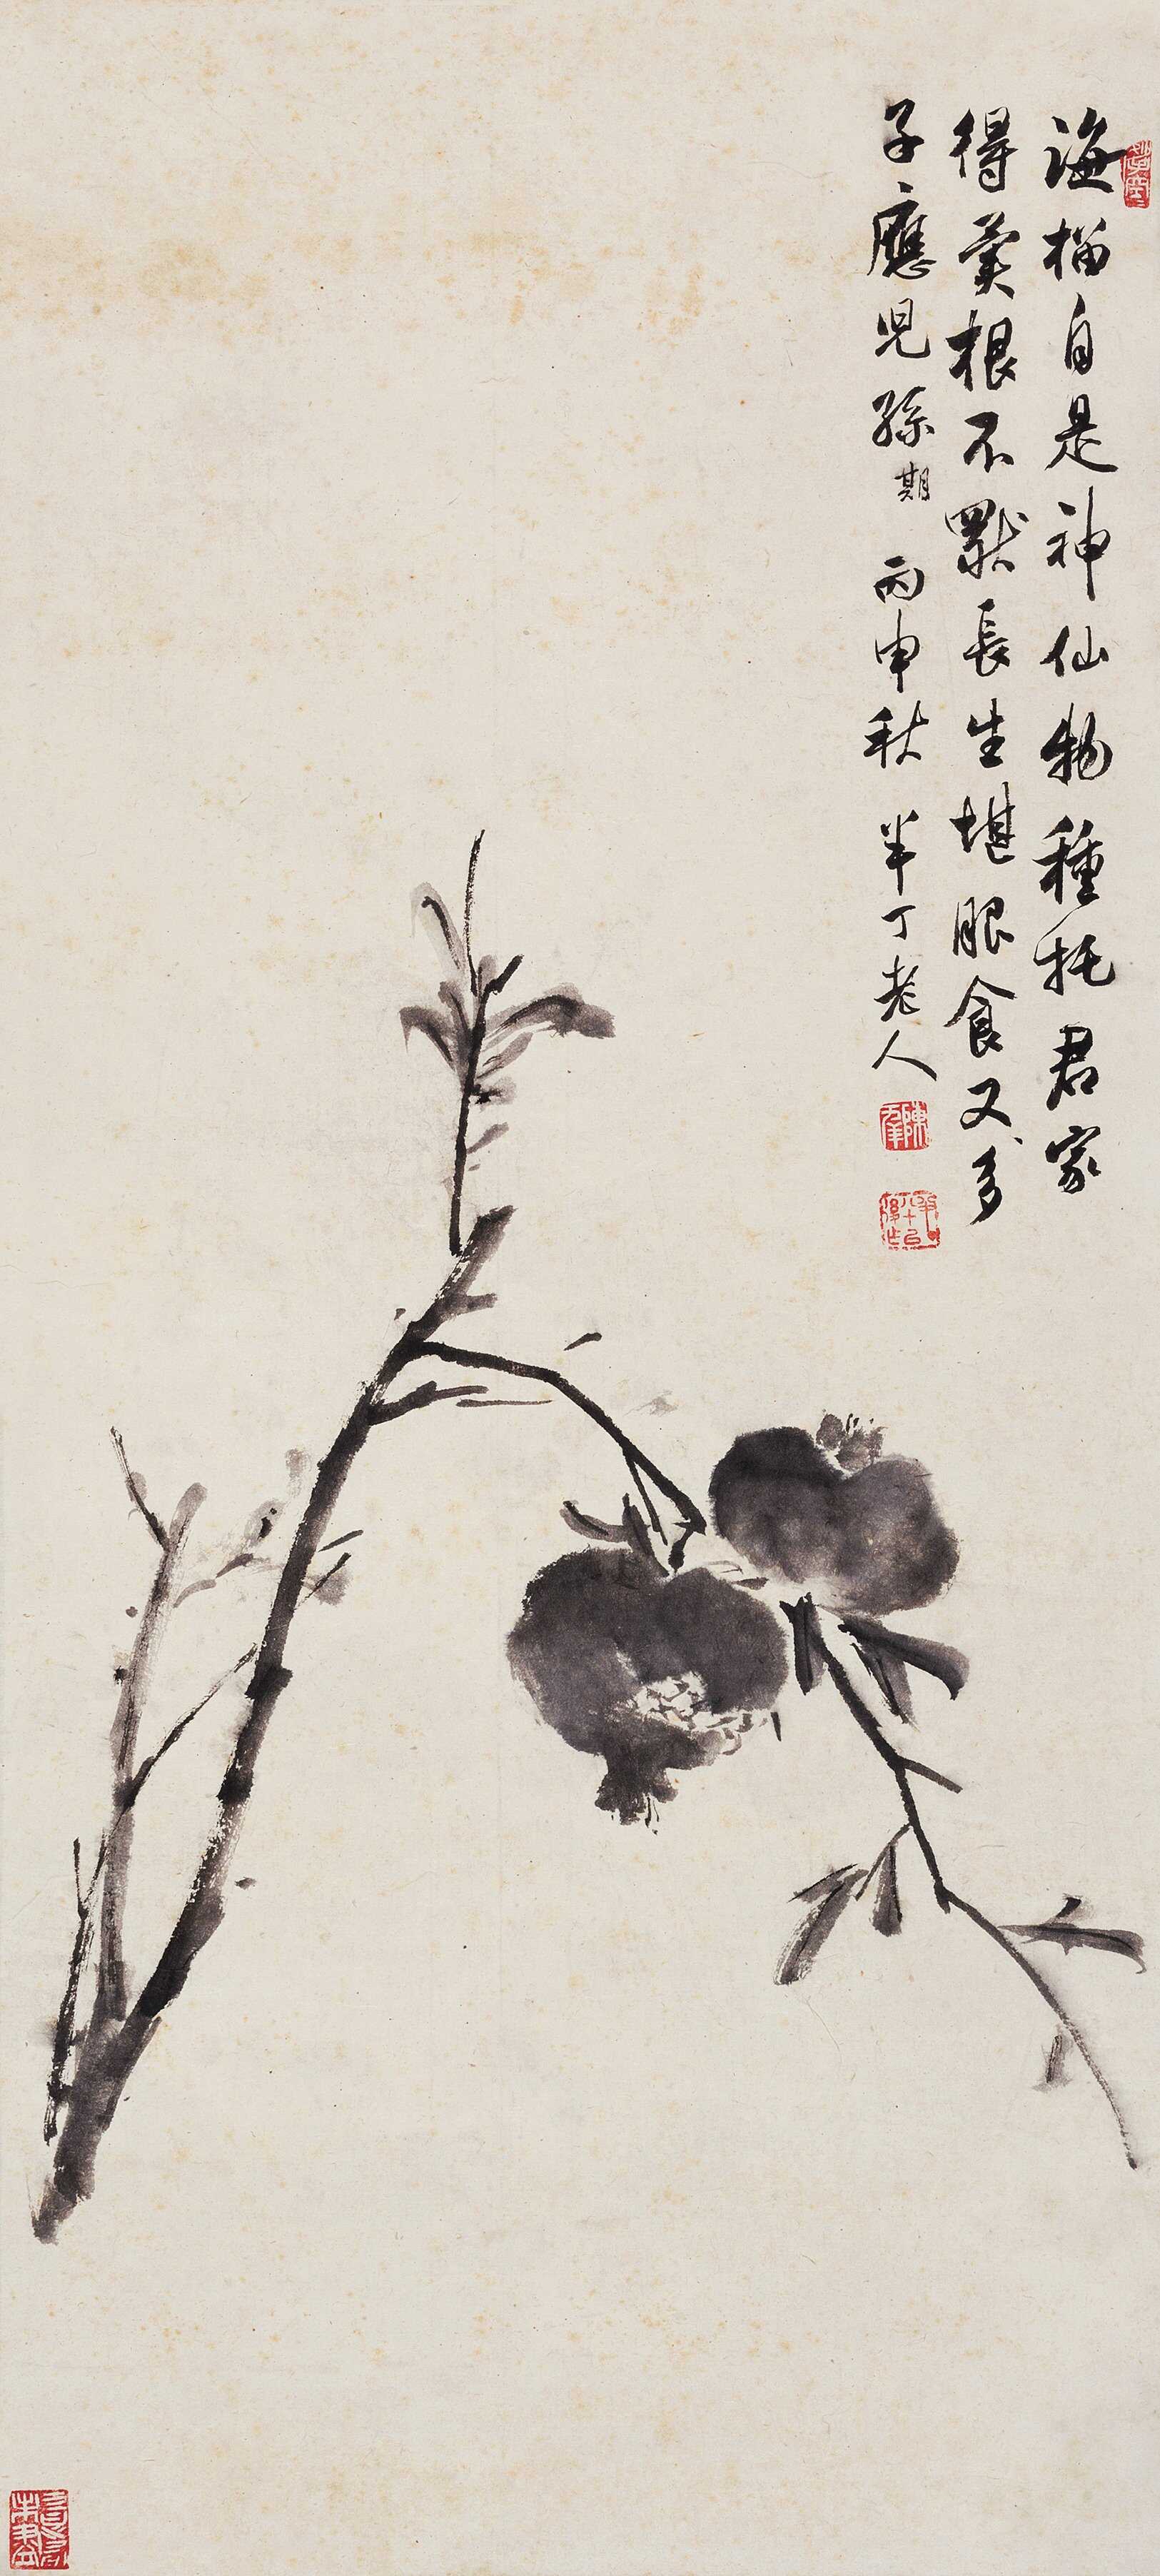 海榴自是神仙物種托君家
得異根不獨長生堪服食又多
子應兒孫期 丙申秋 半丁老人
陳年